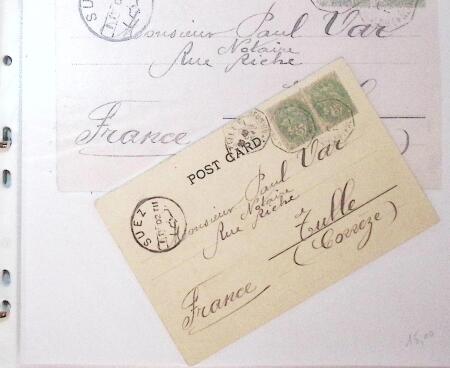 SUEZ
Monsieur Paul Var
Notaire
Rue Riche
Tulle
France
POST CARD.
SUEZ
Monsieur Paul Var
Notaire
Rue Riche
à
Tulle
(Corrèze)
France
15,00